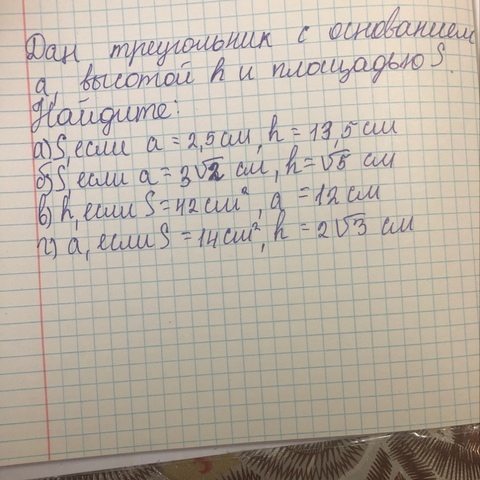 Дан треугольник с основанием
a, высотой h и площадью S.
Найдите:
а) S, если a = 2,5 см, h = 13,5 см
б) S, если a = 3√2 см, h = √5 см
в) h, если S = 42 см², a = 12 см
г) a, если S = 14 см², h = 2√3 см